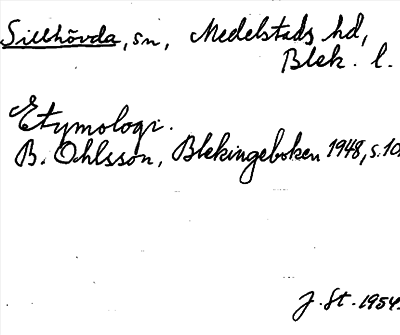 Sillhövda, sn, Medelstads hd,
Blek. l.
Etymologi.
B. Ohlsson, Blekingeboken 1948, s. 10
J. St. 1954.